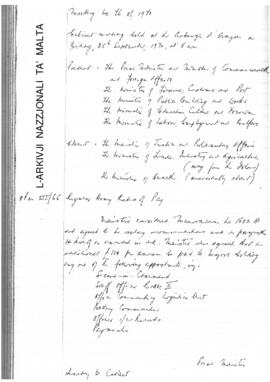 Meeting No 46 of 1970
Cabinet meeting held at the Auberge d'Aragon on
Friday, 25th September, 1970, at 8 am
Present: The Prime Minister and Minister of Commonwealth
and Foreign Affairs
The Minister of Finance, Customs and Port
The Minister of Public Building and Works
The Minister of Education, Culture and Tourism
The Minister of Labour, Employment and Welfare
Absent: The Minister of Justice and Parliamentary Affairs
The Minister of Trade, Industry and Agriculture
(away from the Island)
The Minister of Health (unavoidably absent)
L-ARKIVJI NAZZJONALI TA' MALTA
Regular Army Rates of Pay
Ministers considered Memorandum No
and agreed to the salary recommendations made in paragraph
Ministers also agreed that an
additional £100 per annum be paid to Majors holding
any one of the following appointments, viz:
Second-in-Command
Staff Officer Grade II
Officer Commanding Logistics Unit
Battery Commander
Officer i/c Records
Paymaster
Prime Minister
Secretary to Cabinet